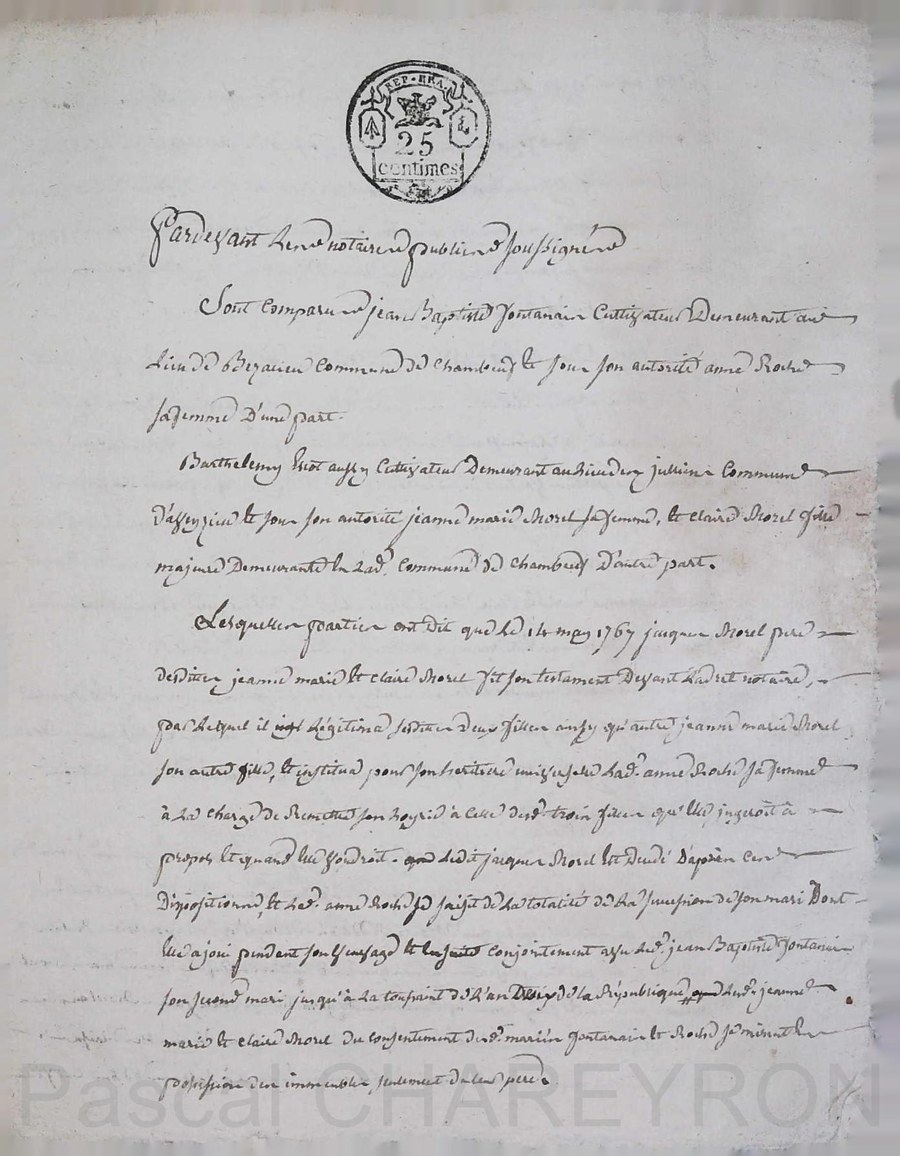 REP. FRA.
25
centimes
Pardevant Les notaires publics soussignés
Sont comparus jean Baptiste fontanais Cultivateur Demeurant au
Lieu de Bezacieu Commune de Chambeuf et sous son autorité anne Roche
sa femme D'une part.
Barthelemy aussy Cultivateur Demeurant au Lieu des jullins Commune
D'aveyzieu et sous son autorité jeanne marie Morel sa femme, et claire Morel fille
majeure Demeurante en Lad. Commune de Chambeuf D'autre part.
Lesquelles parties ont Dit que le 14 may 1767 jacques Morel pere
desdittes jeanne marie et claire Morel fit son testament Devant Ladret notaire,
par Lequel il Légitima sesdittes Deux filles ainsy qu'autre jeanne marie Morel
son autre fille, et institua pour son heritiere universelle Lad. anne Roche sa femme
à La charge de Remettre son hoyrie à celle desd. trois filles qu'elle jugeroit à
propos et quand elle voudroit. ledit jacques Morel est Decedé D'après ces
Dispositions, et Lad. anne Roche se saisit de La totalité de La succession de son mari Dont
elle a joui pendant son veuvage et ensuite conjointement avec led. jean Baptiste fontanais
son second mari jusqu'à La toussaint de L'an Deux de la République lesd. jeanne
marie et claire Morel du consentement desd. mariés fontanais et Roche se mirent en
possession des immeubles seulement de leur pere.
Pascal CHAREYRON